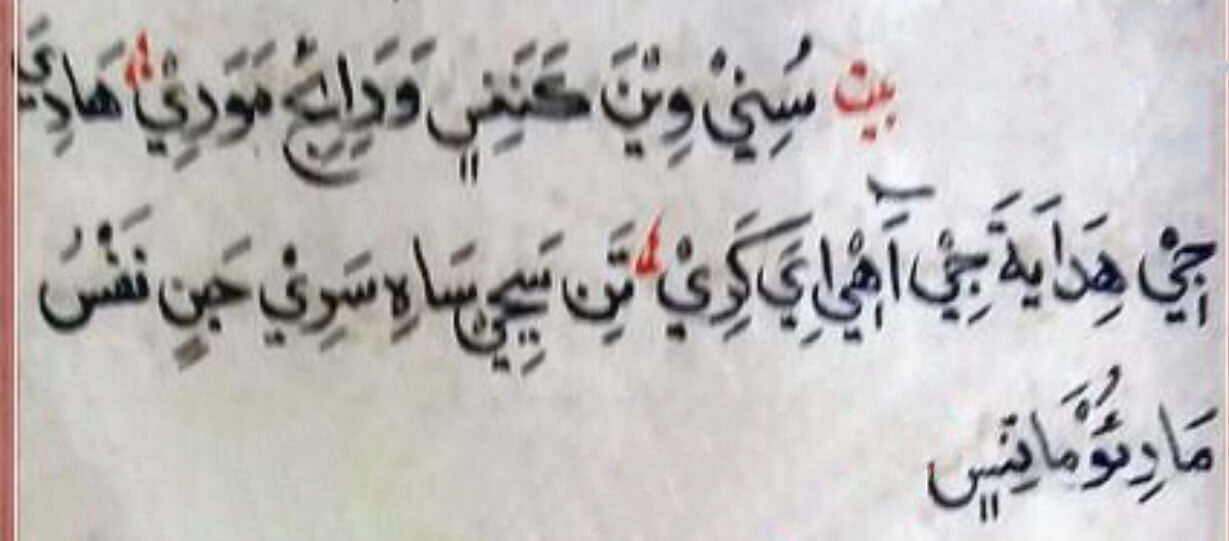 بيت سُنِيْ وِيْنَ كَنَنِسٖ وَدَاِئِعْ مَوَرِيْ هَادِيَ
جِيْ هِدَايَةَ جِيْ آَهْيْاِيَ كَرِيْ تَنِ سَيِجِيْ سَاهِ سَرِيْ جَنٖ نَفْسُ
مَادِئُوْمَاتِسٖ